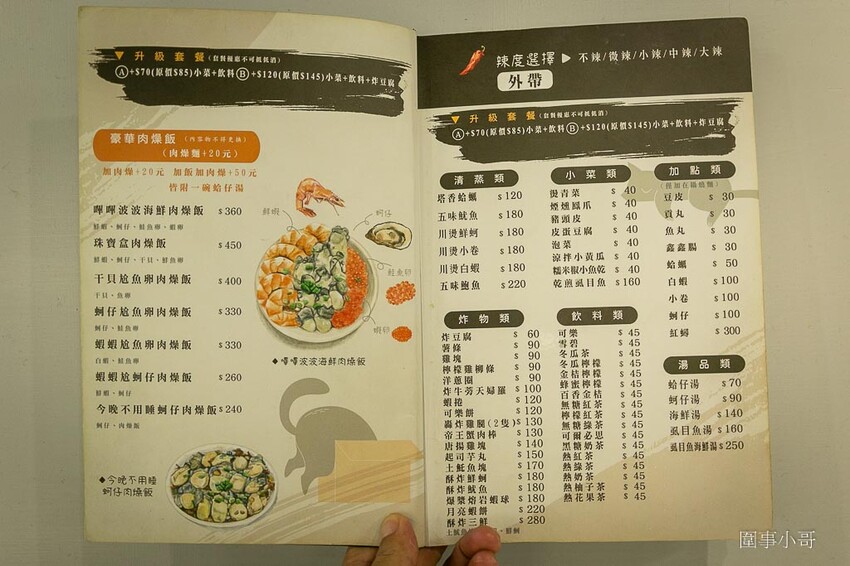 ▼ 升級套餐(套餐優惠不可抵低消)
Ⓐ+$70(原價$85)小菜+飲料Ⓑ+$120(原價$145)小菜+飲料+炸豆腐
豪華肉燥飯(內容物不得更換)
(肉燥麵+20元)
加肉燥+20元 加飯加肉燥+50元
皆附一碗蛤仔湯
嗶嗶波波海鮮肉燥飯 $360
鮮蝦、蚵仔、鮭魚卵、蝦卵
珠寶盒肉燥飯 $450
鮮蝦、蚵仔、干貝、鮭魚卵
干貝尬魚卵肉燥飯 $400
干貝、魚卵
蚵仔尬魚卵肉燥飯 $330
蚵仔、鮭魚卵
蝦蝦尬魚卵肉燥飯 $330
白蝦、鮭魚卵
蝦蝦尬蚵仔肉燥飯 $260
鮮蝦、蚵仔
今晚不用睡蚵仔肉燥飯 $240
蚵仔、肉燥飯
鮮蝦
蚵仔
鮭魚卵
蝦卵
◆嗶嗶波波海鮮肉燥飯
◆今晚不用睡
蚵仔肉燥飯
辣度選擇 ▶ 不辣/微辣/小辣/中辣/大辣
外帶
▼ 升級套餐(套餐優惠不可抵低消)
Ⓐ+$70(原價$85)小菜+飲料Ⓑ+$120(原價$145)小菜+飲料+炸豆腐
清蒸類
塔香蛤蠣 $120
五味魷魚 $180
川燙鮮蚵 $180
川燙小卷 $180
川燙白蝦 $180
五味鮑魚 $220
炸物類
炸豆腐 $60
薯條 $90
雞塊 $90
檸檬雞柳條 $90
洋蔥圈 $90
炸牛蒡天婦羅 $100
蝦捲 $120
可樂餅 $120
轟炸雞腿(2隻) $130
帝王蟹肉棒 $130
唐揚雞 $140
起司芋丸 $150
土魠魚塊 $170
酥炸鮮蚵 $180
酥炸魷魚 $180
爆漿熔岩蝦球 $180
月亮蝦餅 $220
酥炸三鮮 $280
小菜類
燙青菜 $40
煙燻鳳爪 $40
豬頭皮 $40
皮蛋豆腐 $40
泡菜 $40
涼拌小黃瓜 $40
糯米椒小魚乾 $40
乾煎虱目魚 $160
飲料類
可樂 $45
雪碧 $45
冬瓜茶 $45
冬瓜檸檬 $45
金桔檸檬 $45
蜂蜜檸檬 $45
百香金桔 $45
無糖紅茶 $45
檸檬紅茶 $45
無糖綠茶 $45
可爾必思 $45
黑糖奶茶 $45
熱紅茶 $45
熱綠茶 $45
熱奶茶 $45
熱柚子茶 $45
熱花果茶 $45
加點類
豆皮 $30
貢丸 $30
魚丸 $30
鑫鑫腸 $30
蛤蠣 $50
白蝦 $100
小卷 $100
蚵仔 $100
紅蟳 $300
湯品類
蛤仔湯 $70
蚵仔湯 $90
海鮮湯 $140
虱目魚湯 $160
虱目魚海鮮湯 $250
圍事小哥